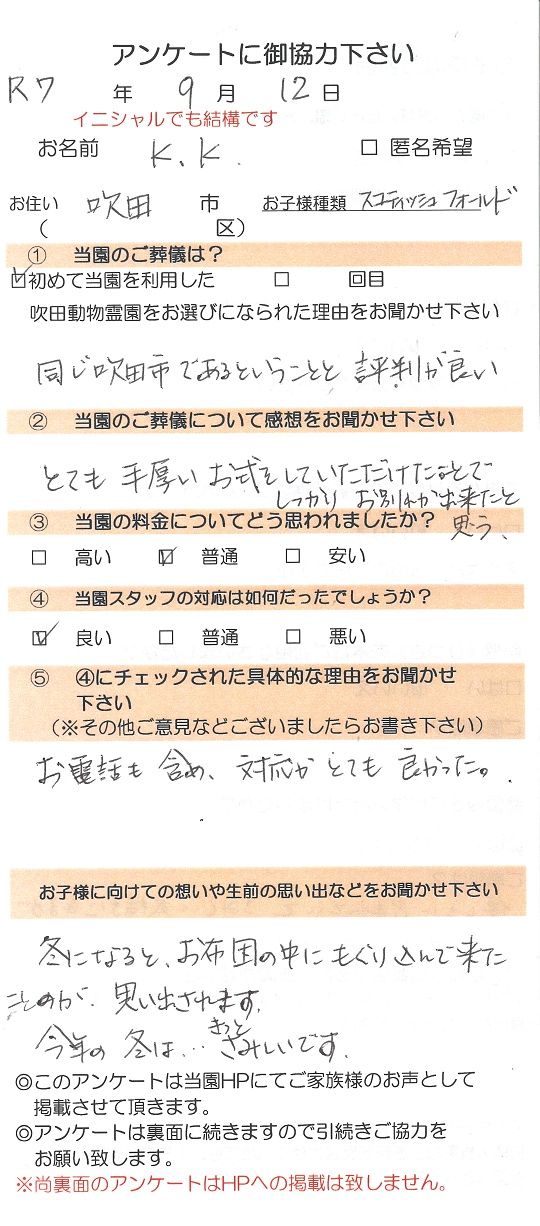 アンケートに御協力下さい
R7 年 9 月 12 日
イニシャルでも結構です
お名前 K.K. □ 匿名希望
お住い 吹田 市 お子様種類 スコティッシュフォールド
( 区)
① 当園のご葬儀は？
☑初めて当園を利用した □ 回目
吹田動物霊園をお選びになられた理由をお聞かせ下さい
同じ吹田市であるということと 評判が良い
② 当園のご葬儀について感想をお聞かせ下さい
とても 手厚い お式をしていただけたことで
しっかり お別れが出来たと
思う、
③ 当園の料金についてどう思われましたか？
□ 高い ☑ 普通 □ 安い
④ 当園スタッフの対応は如何だったでしょうか？
☑ 良い □ 普通 □ 悪い
⑤ ④にチェックされた具体的な理由をお聞かせ
下さい
（※その他ご意見などございましたらお書き下さい）
お電話も 含め、対応が とても 良かった。
お子様に向けての想いや生前の思い出などをお聞かせ下さい
冬になると、お布団の中に もぐり込んで来た
ことのが、思い出されます。
今年の 冬は… きっと さみしいです。
◎このアンケートは当園HPにてご家族様のお声として
掲載させて頂きます。
◎アンケートは裏面に続きますので引続きご協力を
お願い致します。
※尚裏面のアンケートはHPへの掲載は致しません。